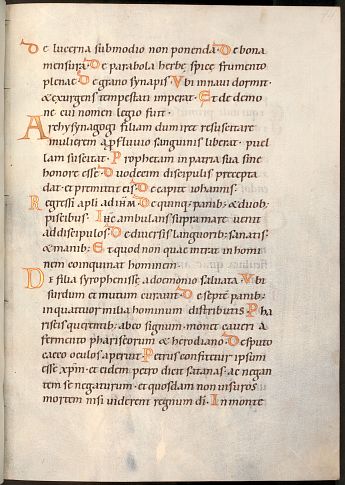 De lucerna submodio non ponenda· De bona
mensura· De parabola herbę spicę frumento
plenae· De grano synapis· Vbi innaui dormit·
&exurgens tempestati imperat· Et de demo
ne cui nomen legio fuit·
Archysynagogi filiam dum iret resuscitare
mulierem a fluuio sanguinis liberat· puel
lam suscitat· Prophetam in patria sua sine
honore esse· Duodecim discipulis precepta
dat· et primittit eis· De capite iohannis·
Regressi apli ad ihm· De quinq; panib; & duob;
piscibus· Inde ambulans supra mare uenit
ad discipulos· De diuersis languorib; sanatis·
& manib; Et quod non quae intrat in homi
nem coinquinat hominem·
De filia syrophenisse a demonio saluata· Vbi
surdum et mutum curauit· De septē panib;
in quattuor milia hominum distributis· Pha
riseis querentib; ab eo signum· monet caueri a
fermento phariseorum & herodiano· De sputo
caeco oculos aperuit· Petrus confitetur ipsum
esse xpm· et eidem petro dicit satanas· ac negan
tem se negaturum· et quosdam non uisuros
mortem nisi uiderent regnum di· In monte